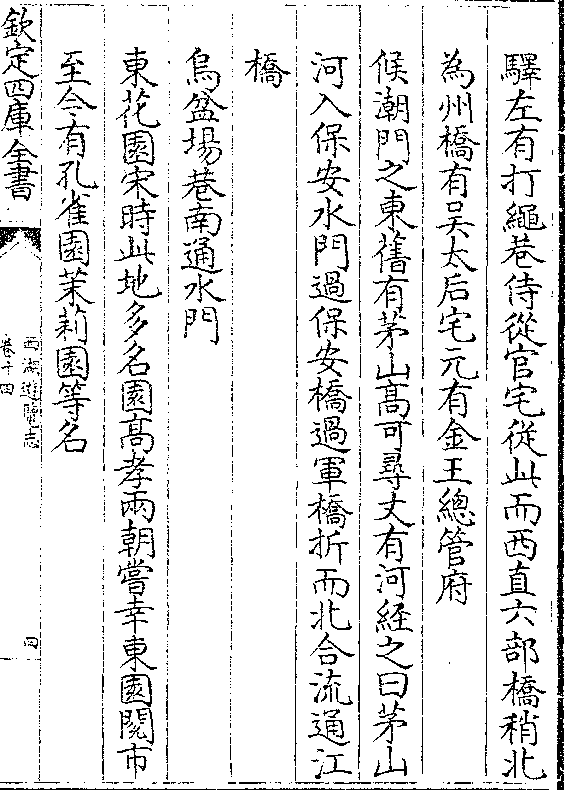 驛左有打繩巷侍從官宅從此而西直六部橋稍北
為州橋有吴太后宅元有金王總管府
候潮門之東舊有茅山高可尋丈有河經之曰茅山
河入保安水門過保安橋過軍橋折而北合流通江
橋
烏盆場巷南通水門
東花園宋時此地多名園髙孝兩朝嘗幸東園閱市
至今有孔雀園茉莉園等名
欽定四庫全書
西湖遊覽志
卷十四
四